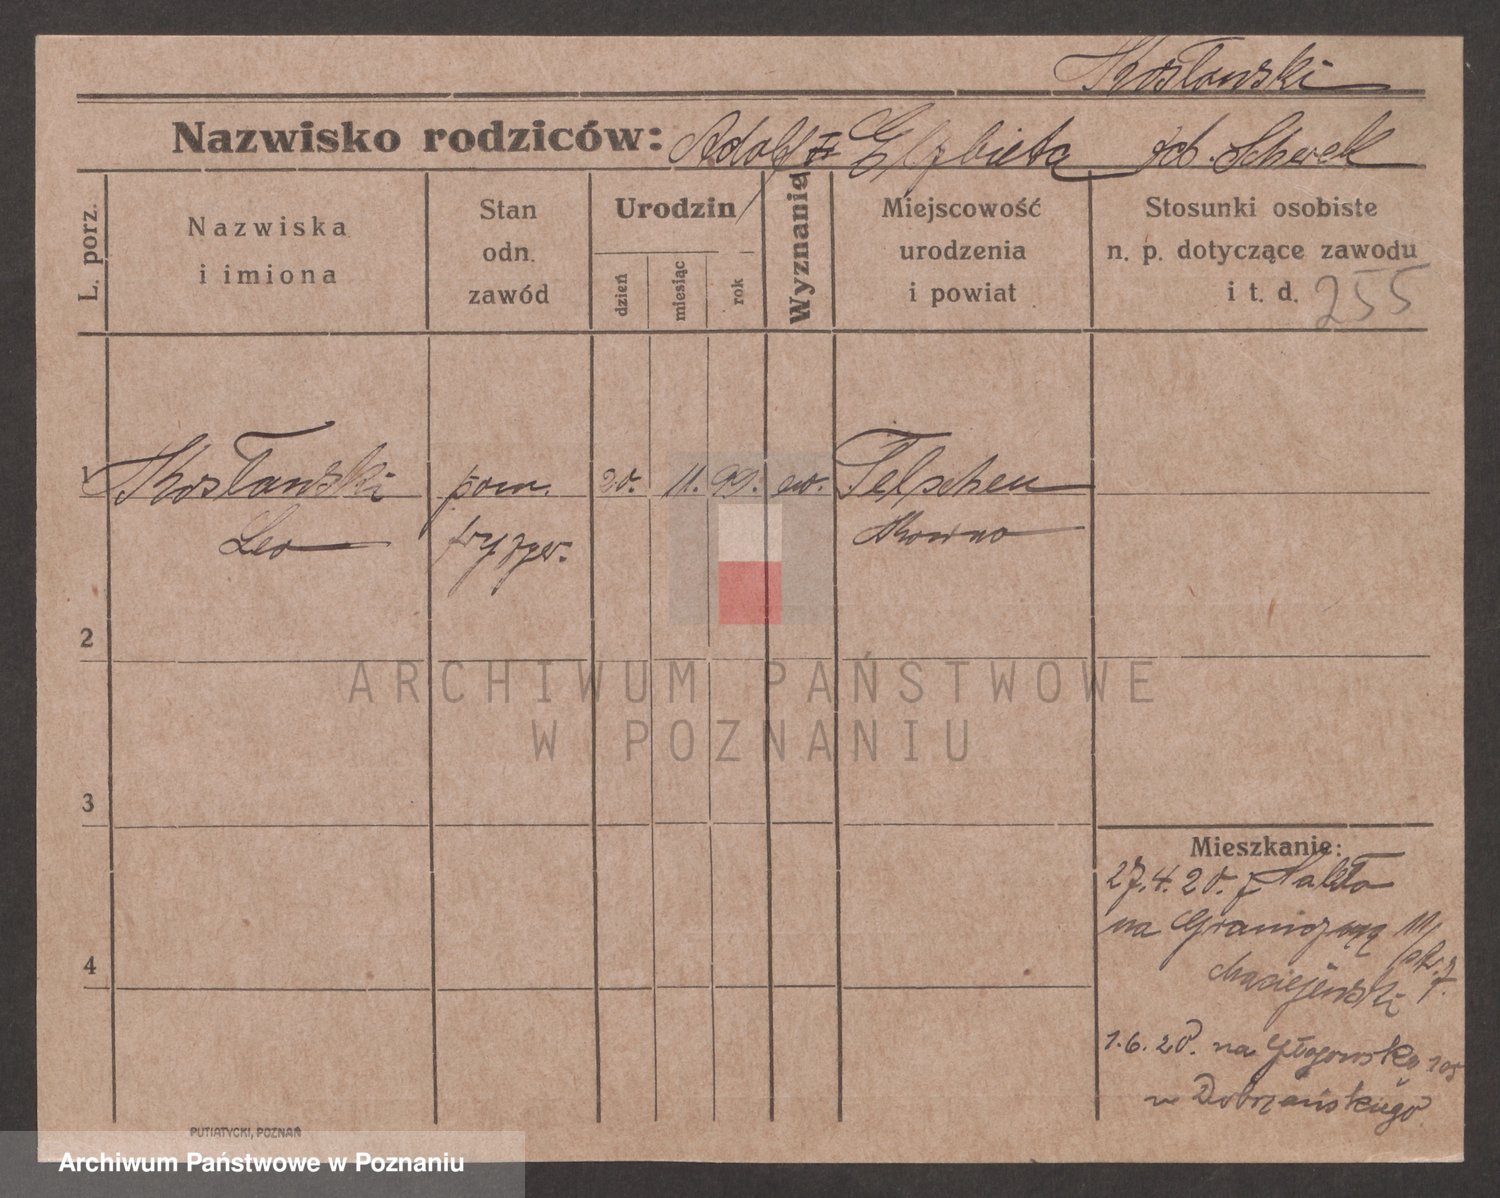 Kosławski
Nazwisko rodziców: Adolf Elżbieta Schvek
L. porz.
Nazwiska
i imiona
Stan
odn.
zawód
Urodzin
dzień
miesiąc
rok
Wyznanie
Miejscowość
urodzenia
i powiat
Stosunki osobiste
n. p. dotyczące zawodu
i t. d.
255
1 Kosławski pom. 20. 11. 99. ew. Telschen
Leo fryzjer. Kowno
2
3
4
Mieszkanie:
27.4.20. z Nakła
na Graniczną 11
Maciejewski
1.6.20. na Głogowską 105
u Dobrzańskiego
PUTIATYCKI, POZNAŃ
ARCHIWUM PAŃSTWOWE
W POZNANIU
Archiwum Państwowe w Poznaniu